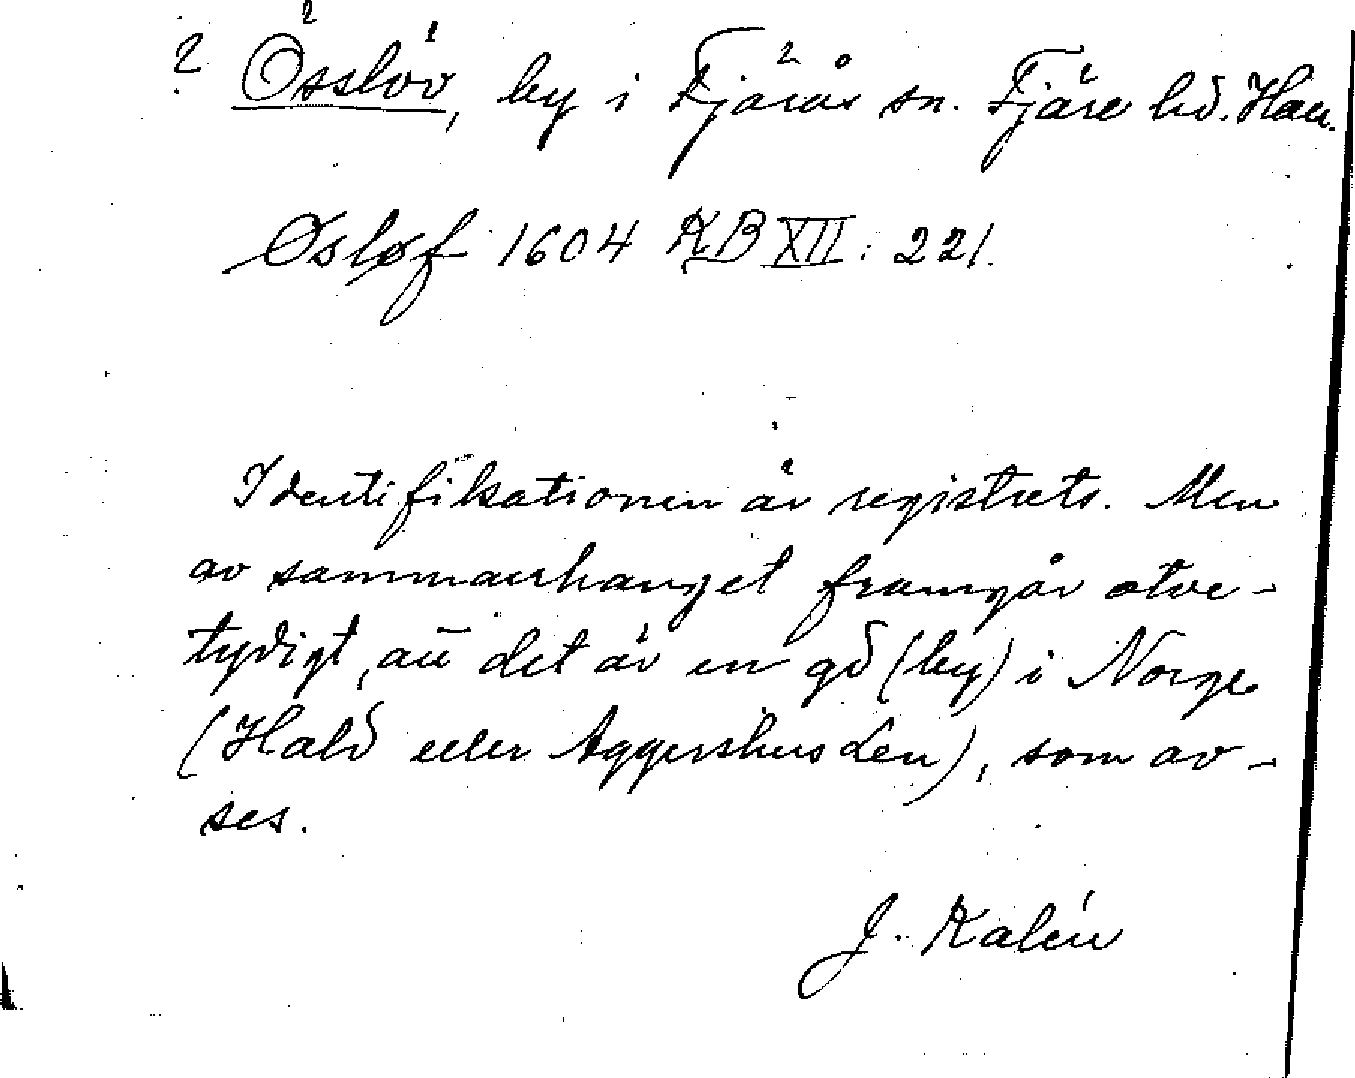 ? Össlöv, by i Fjärås sn. Fjäre hd. Hall.
Øsløf 1604 KB XII: 221.
Identifikationen är registrets. Men
av sammanhanget framgår otve-
tydigt, att det är en gd (by) i Norge
(Hald eller Aggershus Len), som av-
ses.
J. Kalén